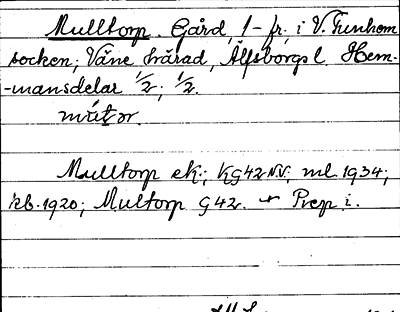 Mulltorp. Gård, 1 – fr. i V. Tunhem
socken; Väne härad, Älfsborgs l. Hem-
-mansdelar 1/2; 1/2.
Mulltorp ek.; Kg 42 NV; ml. 1934;
kb. 1920; Multorp G 42. + Prep i.